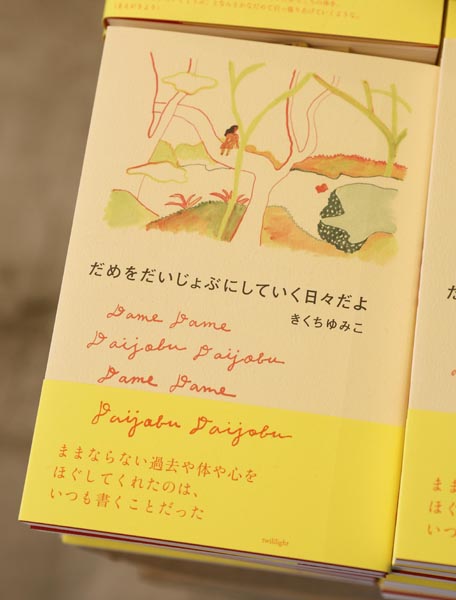 だめをだいじょぶにしていく日々だよ
きくちゆみこ
Dame Dame
Daijobu Daijobu
Dame Dame
Daijobu Daijobu
ままならない過去や体や心を
ほぐしてくれたのは、
いつも書くことだった
twililight
だ
まま
ほぐ
いつ